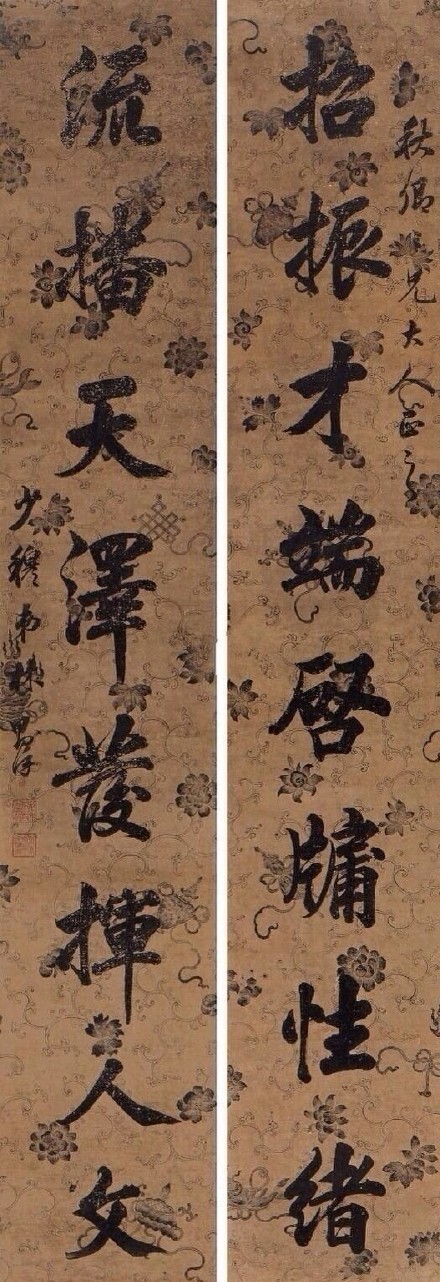 秋卿大兄大人正之
招振才端啓牖性緒
流播天澤發揮人文
少穆弟林則徐